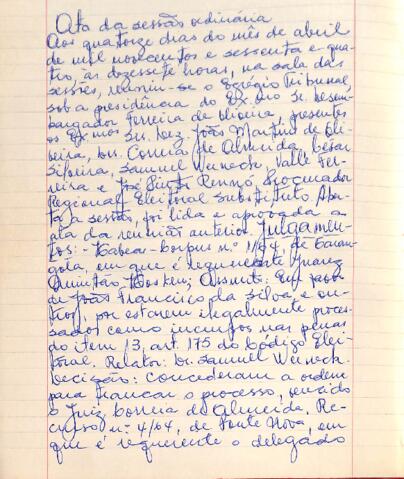 Ata da sessão ordinária
Aos quatorze dias do mês de abril
de mil novecentos e sessenta e qua-
tro, às dezessete horas, na sala das
sessões, reuniu-se o Egrégio Tribunal
sob a presidência do Ex.mo Sr. Desem-
bargador Ferreira de Oliveira, presentes
os Ex.mos Srs. Dez. João Martins de Oli-
veira, Drs. Correia de Almeida, Cesar
Silveira, Samuel Werneck, Valle Fer-
reira e José Pinto Rennó, Procurador
Regional Eleitoral Substituto. Aber-
ta a sessão, foi lida e aprovada a
ata da reunião anterior. Julgamen-
tos: - Habeas-corpus n.º 1/64, de Caran-
gola, em que é requerente Juarez
Quintão Hosken; Assunto: Em favor
de João Francisco da Silva, e ou-
tros, por estarem ilegalmente proces-
sados como incursos nas penas
do item 13, art. 175 do Código Elei-
toral. Relator: Dr. Samuel Werneck
Decisão: Concederam a ordem
para trancar o processo, vencido
o Juiz Correia de Almeida. Re-
curso n.º 4/64, de Ponte Nova, em
que é requerente o delegado